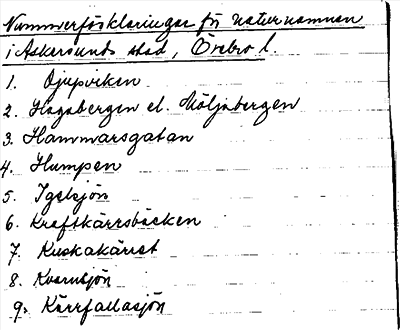 Nummerförklaringar för naturnamnen
i Askersunds stad, Örebro l.
1. Djupviken
2. Hagabergen el. Möljabergen
3. Hammarsgatan
4. Humpen
5. Igelsjön
6. Kraftkärrsbäcken
7. Kuskakärret
8. Kvarnsjön
9. Kärrfallasjön